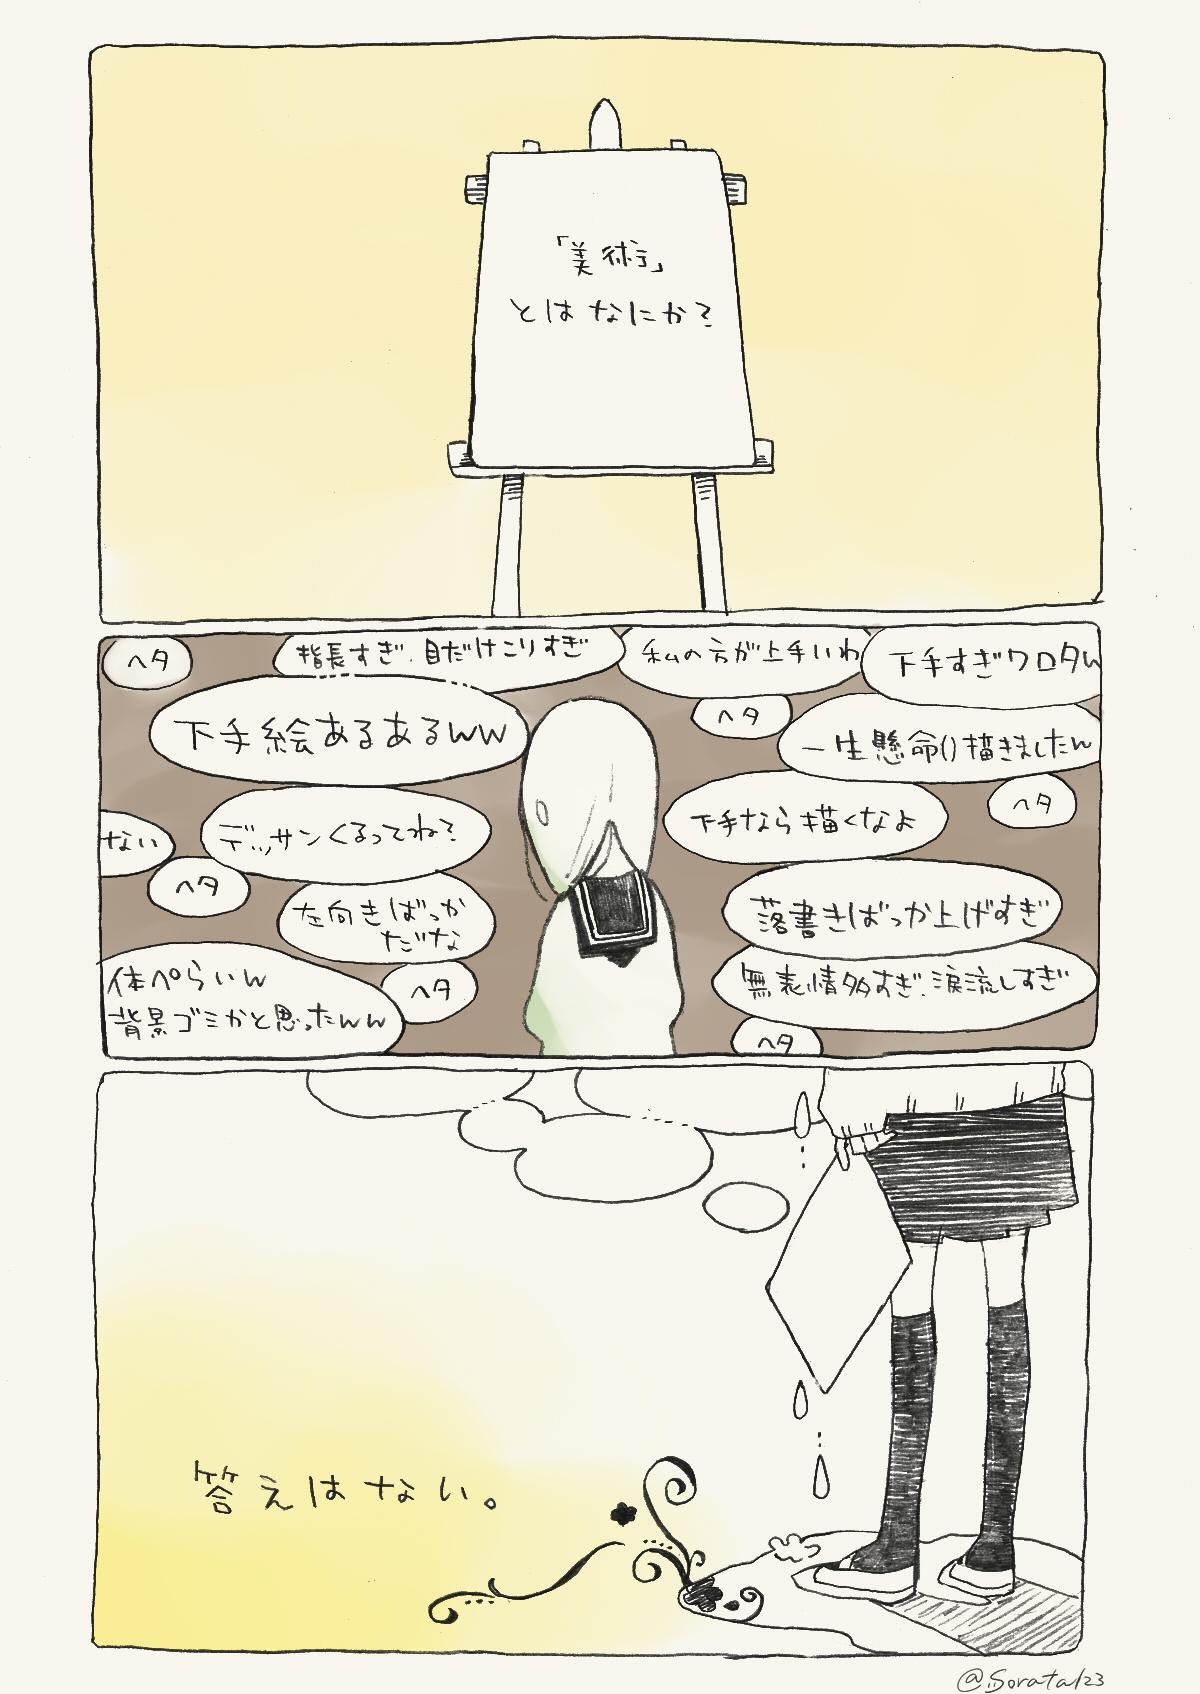 「美術」
とはなにか?
ヘタ
指長すぎ、目だけこりすぎ
私の方が上手いわ
下手すぎワロタw
下手絵あるあるww
ヘタ
一生懸命()描きましたw
ヘタ
ない
デッサンくるってね?
下手なら描くなよ
ヘタ
左向きばっか
だな
落書きばっか上げすぎ
体ぺらいw
背景ゴミかと思ったww
ヘタ
無表情多すぎ、涙流しすぎ
ヘタ
答えはない。
@Sorata123